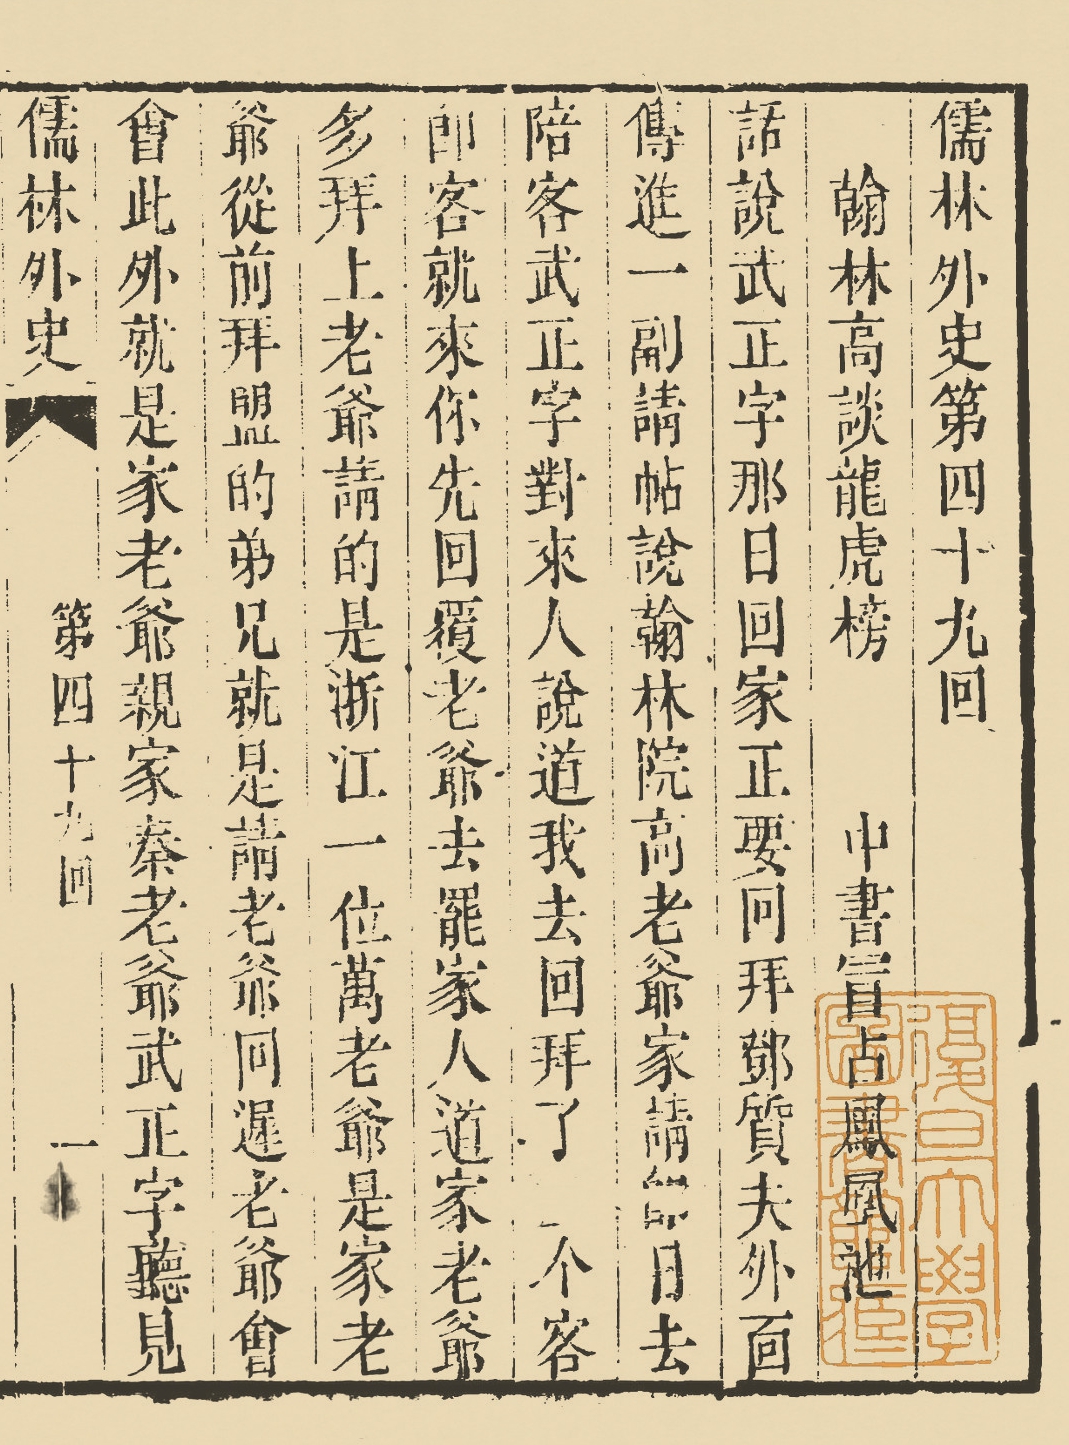 儒林外史第四十九回
翰林高談龍虎榜 中書冒占鳳凰池
話說武正字那日回家正要回拜鄧質夫外面
傳進一副請帖說翰林院高老爺家請即日去
陪客武正字對來人說道我去回拜了 个客
即客就來你先回覆老爺去罷家人道家老爺
多拜上老爺請的是浙江一位萬老爺是家老
爺從前拜盟的弟兄就是請老爺同遲老爺會
會此外就是家老爺親家秦老爺武正字聽見
儒林外史 第四十九回 一
復旦大學圖書館藏